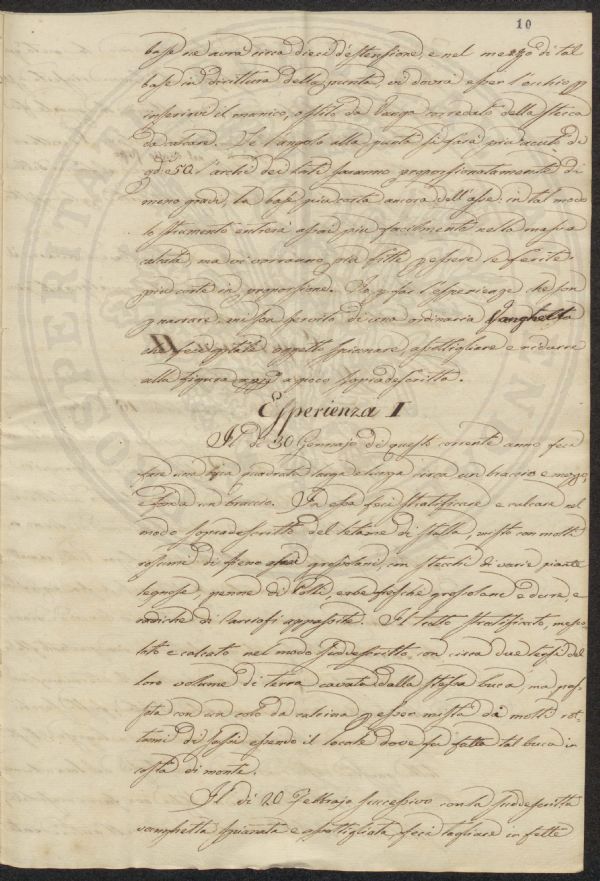 10
base ne avrà circa dieci d'estensione, e nel mezzo di tal
base in dirittura della punta, vi dovrà esser l'occhio p
inserirvi il manico, o stilo da Vanga corredato della stecca
da calcare. Se l'angolo alla punta si farà più acuto di
gdi 50. l'archi dei lati saranno proporzionatamente di
meno gradi, la base più corta ancora dell'asse: in tal modo
lo strumento entrerà assai più facilmente nella massa
calcata, ma vi vorranno più fitte p essere le ferite
più corte in proporzione. Io p far l'esperienze che son
p narrare, mi son servito di una ordinaria Vanghetta
che feci spianare, assottigliare e ridurre
alla figura a poco sopradescritta.
Esperienza I
Il dì 30 Gennajo di questo corrente anno feci
fare una buca quadrata larga e lunga circa un braccio e mezzo,
e fonda un braccio. In essa feci stratificare e calcare nel
modo sopradescritto del letame di stalla, misto con molti
rosumi di fieno assai grossolani, con stecchi di varie piante
legnose, penne di Polli, erbe fresche grossolane e dure, e
radiche di Carciofi appassite. Il tutto stratificato, mesco-
lato e calcato nel modo suddescritto, con circa due terzi del
loro volume di terra cavata dalla stessa buca, ma pas-
sata con un colo da calcina p esser mista di molti rot-
tami di sassi essendo il locale dove fu fatta tal buca in
costa di monte.
Il dì 20 Febbrajo successivo con la suddescritta
vanghetta spianata e assottigliata, feci tagliare in fette